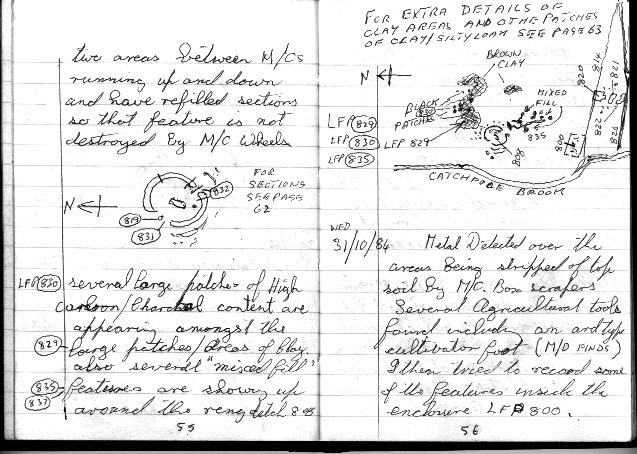 two areas between M/Cs
running up and down
and have refilled sections
so that feature is not
destroyed by M/C Wheels
FOR
SECTIONS
SEE PAGE
62
N
832
819
831
LFP 830 several large patches of High
Carbon/Charcoal content are
appearing amongst the
829 large patches/Areas of Clay
also several "mixed fill"
835 features are showing up
837 around the ring ditch 808
55
FOR EXTRA DETAILS OF
CLAY AREAS AND OTHE PATCHES
OF CLAY/SILTY LOAM SEE PAGE 63
BROWN
CLAY
N
BLACK
830
PATCHES
MIXED
FILL
LFP 829
LFP 830
LFP 829
LFP 835
835
808
820
814
821
822
800
728
CATCHPOLE BROOK
WED
31/10/84 Metal Detected over the
areas being stripped of top
soil by M/C. Box scrapers
Several Agricultural tools
found including an ard type
cultivator foot (M/D FINDS)
I then tried to record some
of the features inside the
enclosure LFP 800.
56